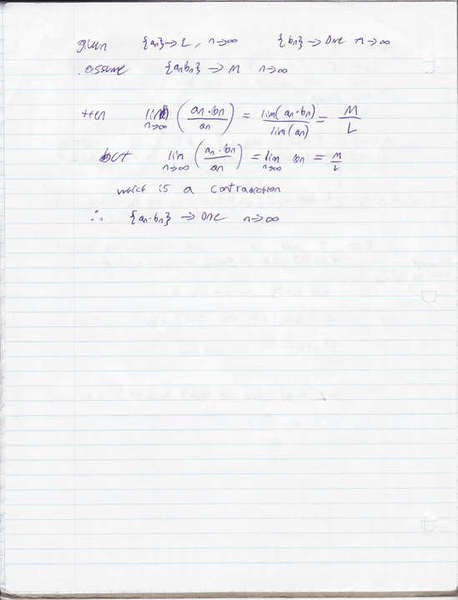 given {an}→L, n→∞ {bn}→DNE n→∞
assume {anbn}→M n→∞
then lim n→∞ (an·bn/an) = lim(an·bn)/lim(an) = M/L
but lim n→∞ (an·bn/an) = lim n→∞ bn = M/L
which is a contradiction
∴ {an·bn} → DNE n→∞